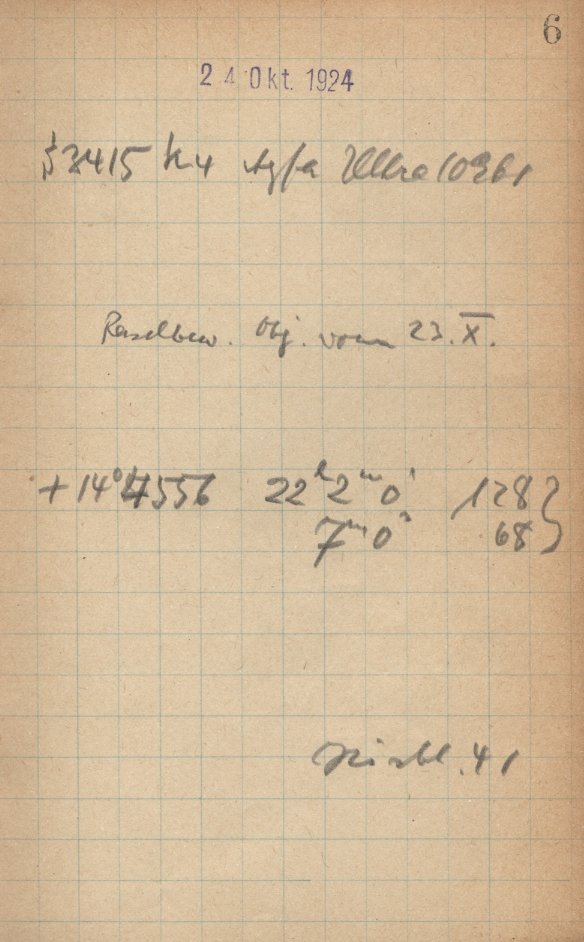 6
24 Okt. 1924
3415 Agfa Ultra 10961
Obj. vom 23. X.
+14° 4556 22ʰ 2ᵐ 0ˢ 128 }
7ᵐ 0ˢ 68 }
41